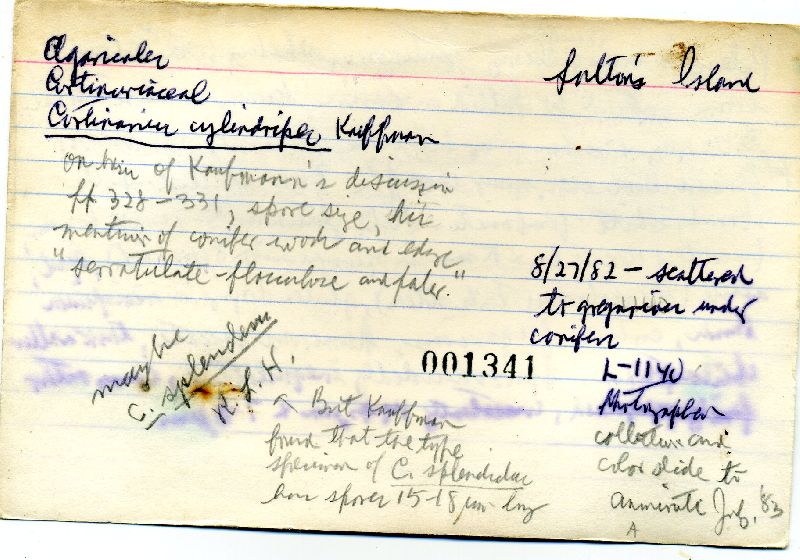 Agaricales
Cortinariaceae
Cortinarius cylindripes Kauffman
Folton's Island
on basis of Kauffmann's discussion
pp 328-331, spore size, his
mention of conifer woods and edge
"serratulate-flocculose and paler."
maybe
C. splendens
R. L. H.
8/27/82 - scattered
to gregarious under
conifers
001341
L-1140
Photographed
a But Kauffman
found that the type
specimen of C. splendidus
has spores 15-18 µm long
collection and
color slide to
Ammirati Feb. '83
A